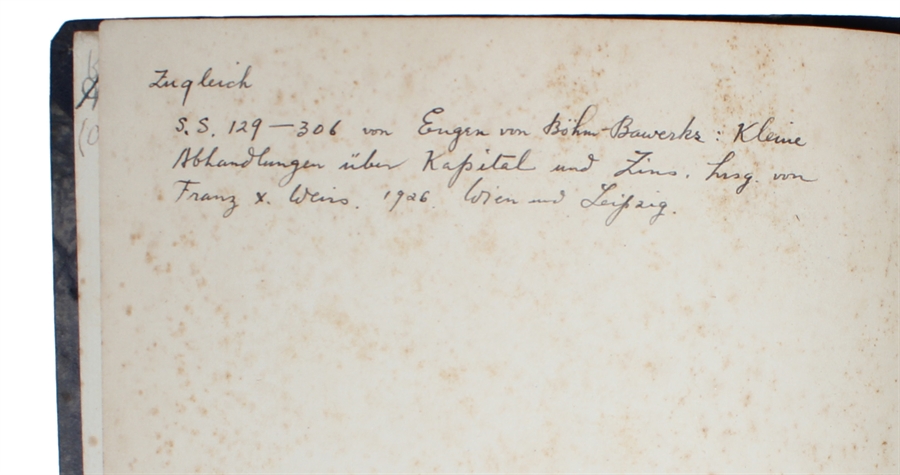 Zugleich
S.S. 129—306 von Eugen von Böhm-Bawerks: Kleine
Abhandlungen über Kapital und Zins. hrsg. von
Franz X. Weiss. 1926. Wien und Leipzig.